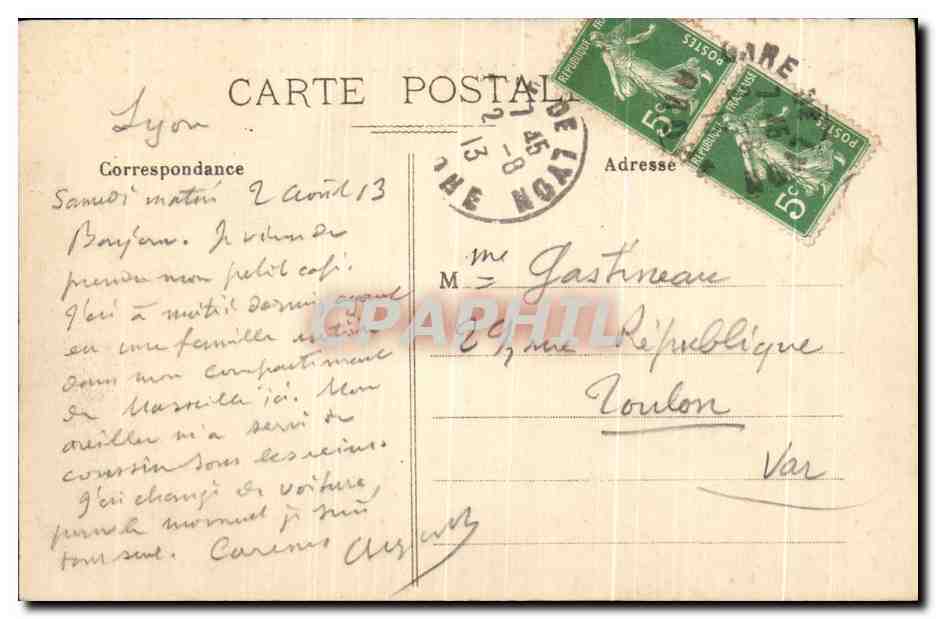 CARTE POSTALE
Lyon
Correspondance
Samedi matin 2 Août 13
Bonjour. Je viens de
prendre mon petit café.
J'ai à moitié dormi ayant
eu une famille entière
dans mon compartiment
de Marseille ici. Mon
oreiller m'a servi de
coussin sous les reins.
J'ai changé de voiture,
pour le moment je suis
tout seul. Caresses
Adresse
Mme Gastineau
29, rue République
Toulon
Var
REPUBLIQUE FRANÇAISE
POSTES
5c
REPUBLIQUE FRANÇAISE
POSTES
5c
GARE DE LYON
RHONE
7 45
2 -8
13
GARE
CPAPHIL